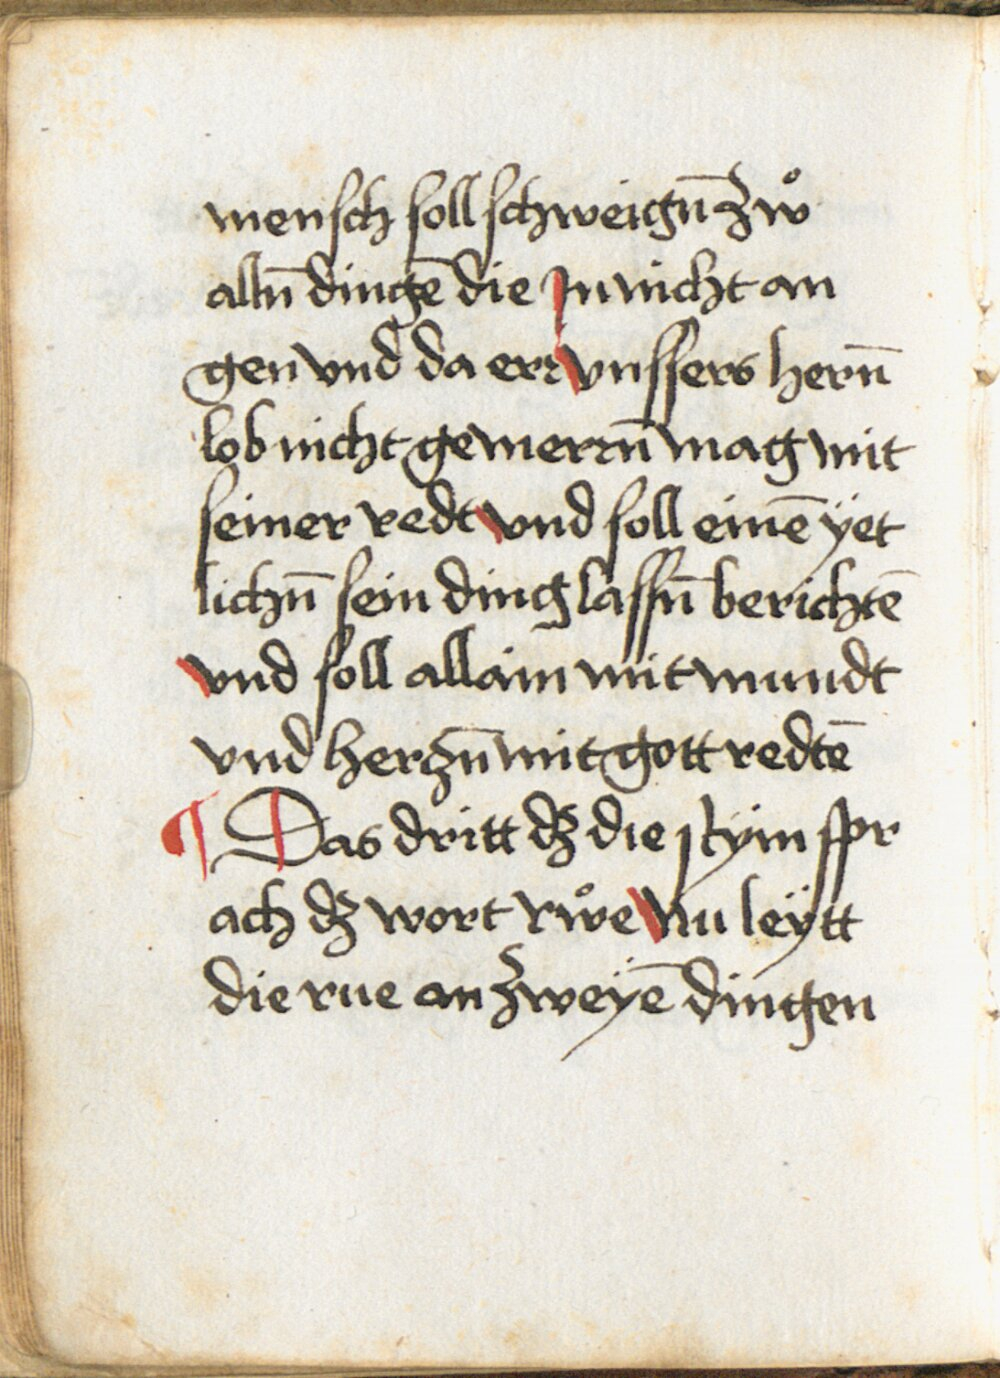 mensch soll schweign̄ zwͦ
alln̄ dingē die Jn nicht an
gen vnd da err vnssers hern̄
lob nicht gemerrn̄ mag mit
seiner redt vnd soll einē ÿet
lichn̄ sein ding lassn̄ berichtē
vnd soll allain mit mundt
vnd herzn̄ mit gott redtē
¶ Das dritt dʒ die stÿm spr
ach dʒ wort rwͦe Nu leÿtt
die rue an zweÿē dingen